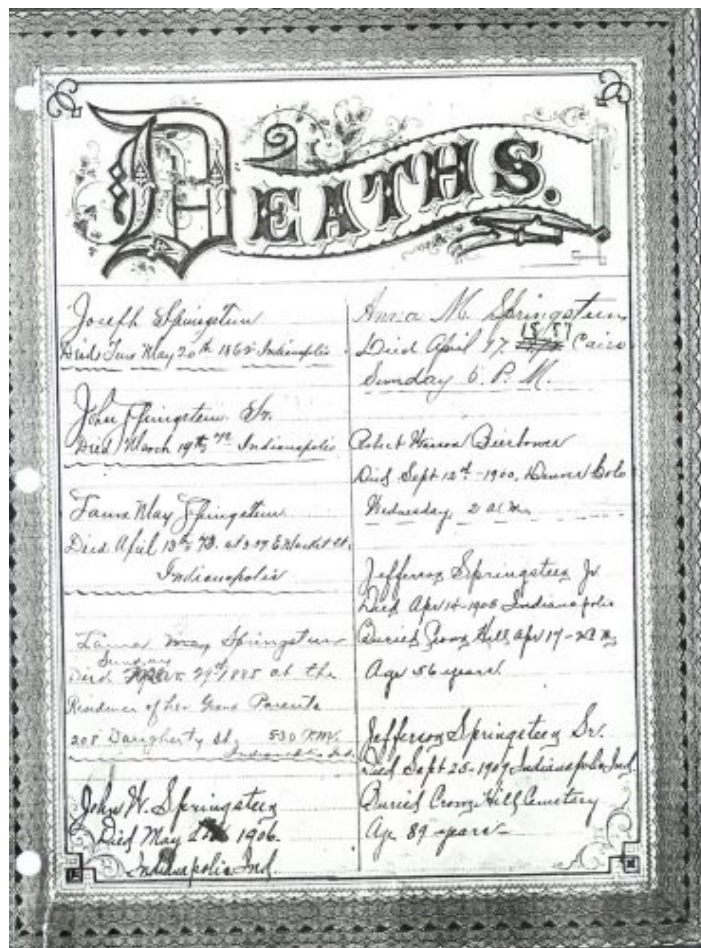 DEATHS.
Joseph Springsteen
Died Tues May 20th 1862 Indianapolis
John Springsteen Sr.
Died March 19th Indianapolis
May Springsteen
Died April 13th 73. at 309 E Market St.
Indianapolis
May Springsteen
Sunday
Died 29th 1885 at the
Residence of her Grand Parents
208 Daugherty St, 530 P.M.
Indianapolis Ind.
John W. Springsteen
Died May 1906.
Indianapolis Ind.
Anna M. Springsteen
18/87
Died April 17. Cairo
Sunday 6. P. M.
Robert Bierbower
Died Sept 12th - 1900. Denver Colo
Wednesday, 2 a.m.
Jefferson Springsteen Jr
Died Apr 14 - 1908 Indianapolis
Buried Crown Hill, Apr 17 - 2 P.M.
Age 56 years.
Jefferson Springsteen Sr.
Died Sept 25 - 1909 Indianapolis, Ind.
Buried Crown Hill Cemetery
Age 89 years -